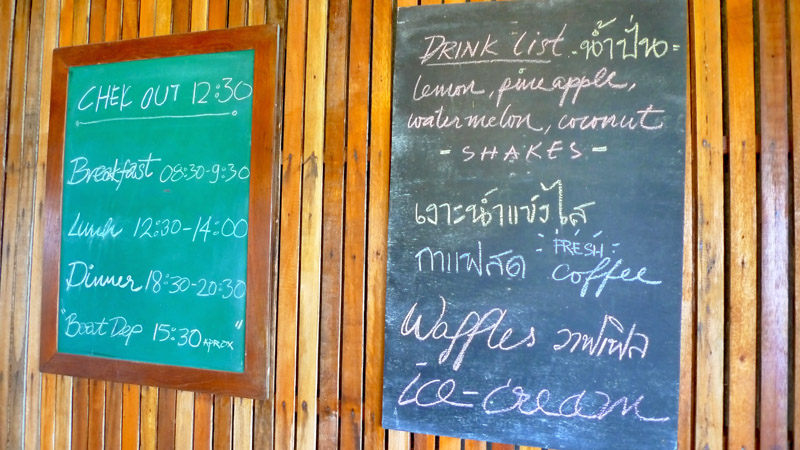 CHEK OUT 12:30
Breakfast 08:30-9:30
Lunch 12:30-14:00
Dinner 18:30-20:30
"Boat Dep 15:30 APROX"
DRINK list - น้ำปั่น =
lemon, pineapple,
watermelon, coconut
- SHAKES -
เงาะน้ำแข็งใส
กาแฟสด FRESH coffee
Waffles วาฟเฟิล
ice-cream